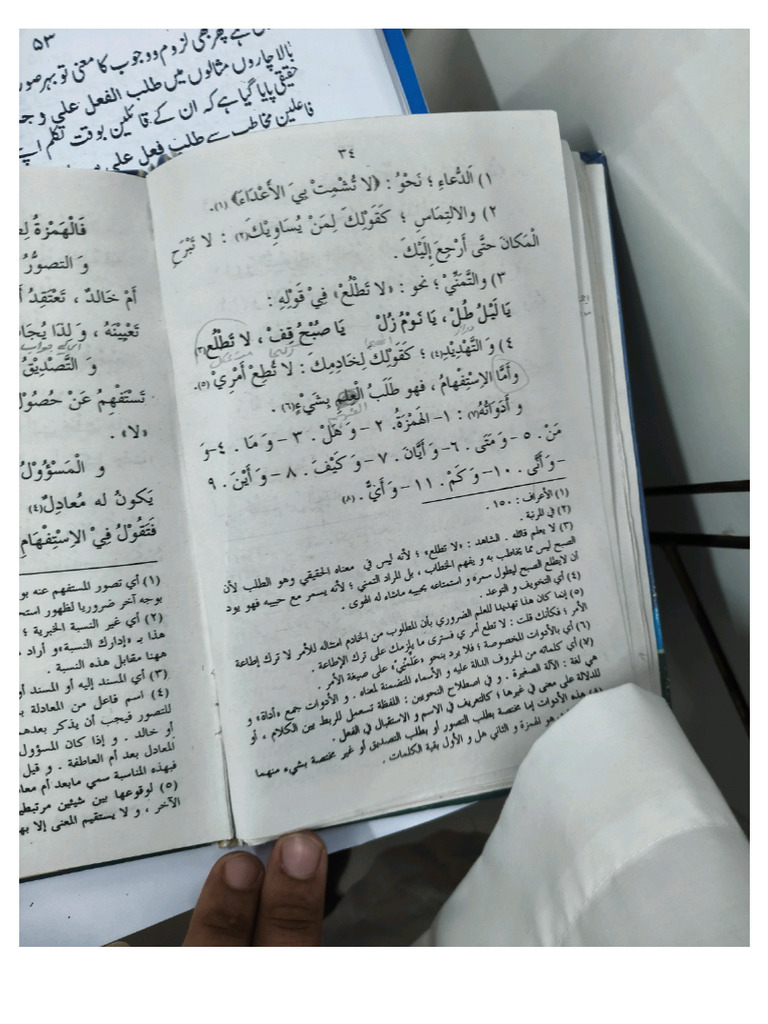 ٥٣
ہے پھر بھی لزوم ووجوب کا معنی تو بہر صور
بالا چاروں مثالوں میں طلب الفعل علی وجـ
حقیقی پایا گیا ہے کہ ان کے قائلین بوقت تکلم اپـ
فاعلین مخاطب سے طلب فعل علی
٣٤
١) اَلدُّعَاءِ ؛ نَحْوُ : ﴿لا تُشْمِتْ بِيَ الأَعْدَاءَ﴾(١).
٢) وَالالتِمَاسِ ؛ كَقَوْلِكَ لِمَنْ يُسَاوِيْكَ(٢) : لا تَبْرَحِ
الْمَكانَ حتَّى أَرْجِعَ إِلَيْكَ .
٣) والتَّمَنِّيْ ؛ نحو : «لا تَطْلُعْ» فِيْ قَوْلِهِ :
يَا لَيْلُ طُلْ ، يَا نَوْمُ زُلْ يا صُبْحُ قِفْ ، لا تَطْلُعِ(٣)
٤) وَ التَّهْدِيْدِ(٤) ؛ كَقَوْلِكَ لِخَادِمِكَ : لا تُطِعْ أَمْرِيْ(٥).
وأَمَّا الاِسْتِفْهامُ ، فهو طَلَبُ الْعِلْمِ بِشَيْءٍ(٦) .
و أَدَوَاتُهُ(٧) : ١- الهَمْزَةُ. ٢- وَ هَلْ. ٣- وَ مَا . ٤- وَ
مَنْ. ٥- وَ مَتَى . ٦- وَ أَيَّانَ . ٧- وَ كَيْفَ . ٨- وَ أَيْنَ . ٩
- وَ أَنَّى . ١٠- وَ كَمْ . ١١- وَ أَيٌّ . (٨)
(١) الأعراف : ١٥٠ .
(٢) في المرتبة .
(٣) لا يعلم قائله . الشاهد : «لا تطلع» ؛ لأنه ليس في معناه الحقيقي وهو الطلب لأن
الصبح ليس مما يخاطب به و يفهم الخطاب ، بل المراد التمني ؛ لأنه يسمر مع حبيبه فهو يود
أن لايطلع الصبح ليطول سمره و استمتاعه بحبيبه ماشاء له الهوى .
(٤) أي التخويف و التوعد .
(٥) إنما كان هذا تهديدا للعلم الضروري بأن المطلوب من الخادم امتثاله للأمر لا ترك إطاعة
الأمر ؛ فكأنك قلت : لا تطع أمري فسترى ما يلزمك على ترك الإطاعة .
(٦) أي بالأدوات المخصوصة ؛ فلا يرد بنحو «عَلِّمْنِيْ» على صيغة الأمر .
(٧) أي كلماته من الحروف الدالة عليه و الأسماء المتضمنة لمعناه . و الأدوات جمع «أداة» و
هي لغة : الآلة الصغيرة . و في اصطلاح النحويين : اللفظة تستعمل للربط بين الكلام ، أو
للدلالة على معنى في غيرها ؛ كالتعريف في الاسم و الاستقبال في الفعل .
هذه الأدوات إما مختصة بطلب التصور أو بطلب التصديق أو غير مختصة بشيء منهما
هو الهمزة و الثاني هل و الأول بقية الكلمات .
فَالْهَمْزَةُ لِـ
وَ التصوُّرُ
أَمْ خَالدٌ ، تَعْتَقِدُ أَ
تَعْيِيْنَهُ ، وَ لِذَا يُجَا
وَ التَّصْدِيْقُ
تَسْتَفْهِمُ عَنْ حُصُوْلِ
«لا» .
و الْمَسْؤُوْلُ
يَكونُ له مُعَادِلٌ(٤)
فَتَقُوْلُ فِيْ الاِسْتِفْهامِ
(١) أي تصور المستفهم عنه بو
بوجه آخر ضروريا لظهور استحـ
(٢) أي غير النسبة الخبرية ؛
هذا بـ «إدارك النسبة» و أراد
ههنا مقابل هذه النسبة .
(٣) أي المسند إليه أو المسند أو
(٤) اسم فاعل من المعادلة بـ
للتصور فيجب أن يذكر بعدهـ
أو خالد . و إذا كان المسؤول
المعادل بعد أم العاطفة . و قيل
فبهذه المناسبة سمي مابعد أم معاد
(٥) لوقوعها بين شيئين مرتبطيـ
الآخر ، و لا يستقيم المعنى إلا بهـ